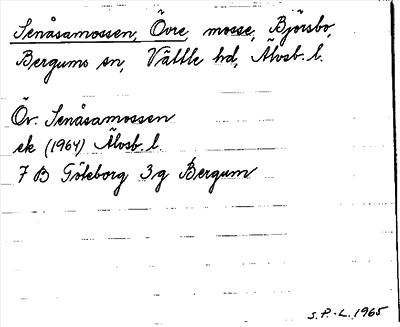 Senåsamossen, Övre, mosse, Björsbo,
Bergums sn, Vättle hd, Älvsb. l.
Öv. Senåsamossen
ek (1964) Älvsb. l.
7 B Göteborg 3g Bergum
S.P.-L. 1965